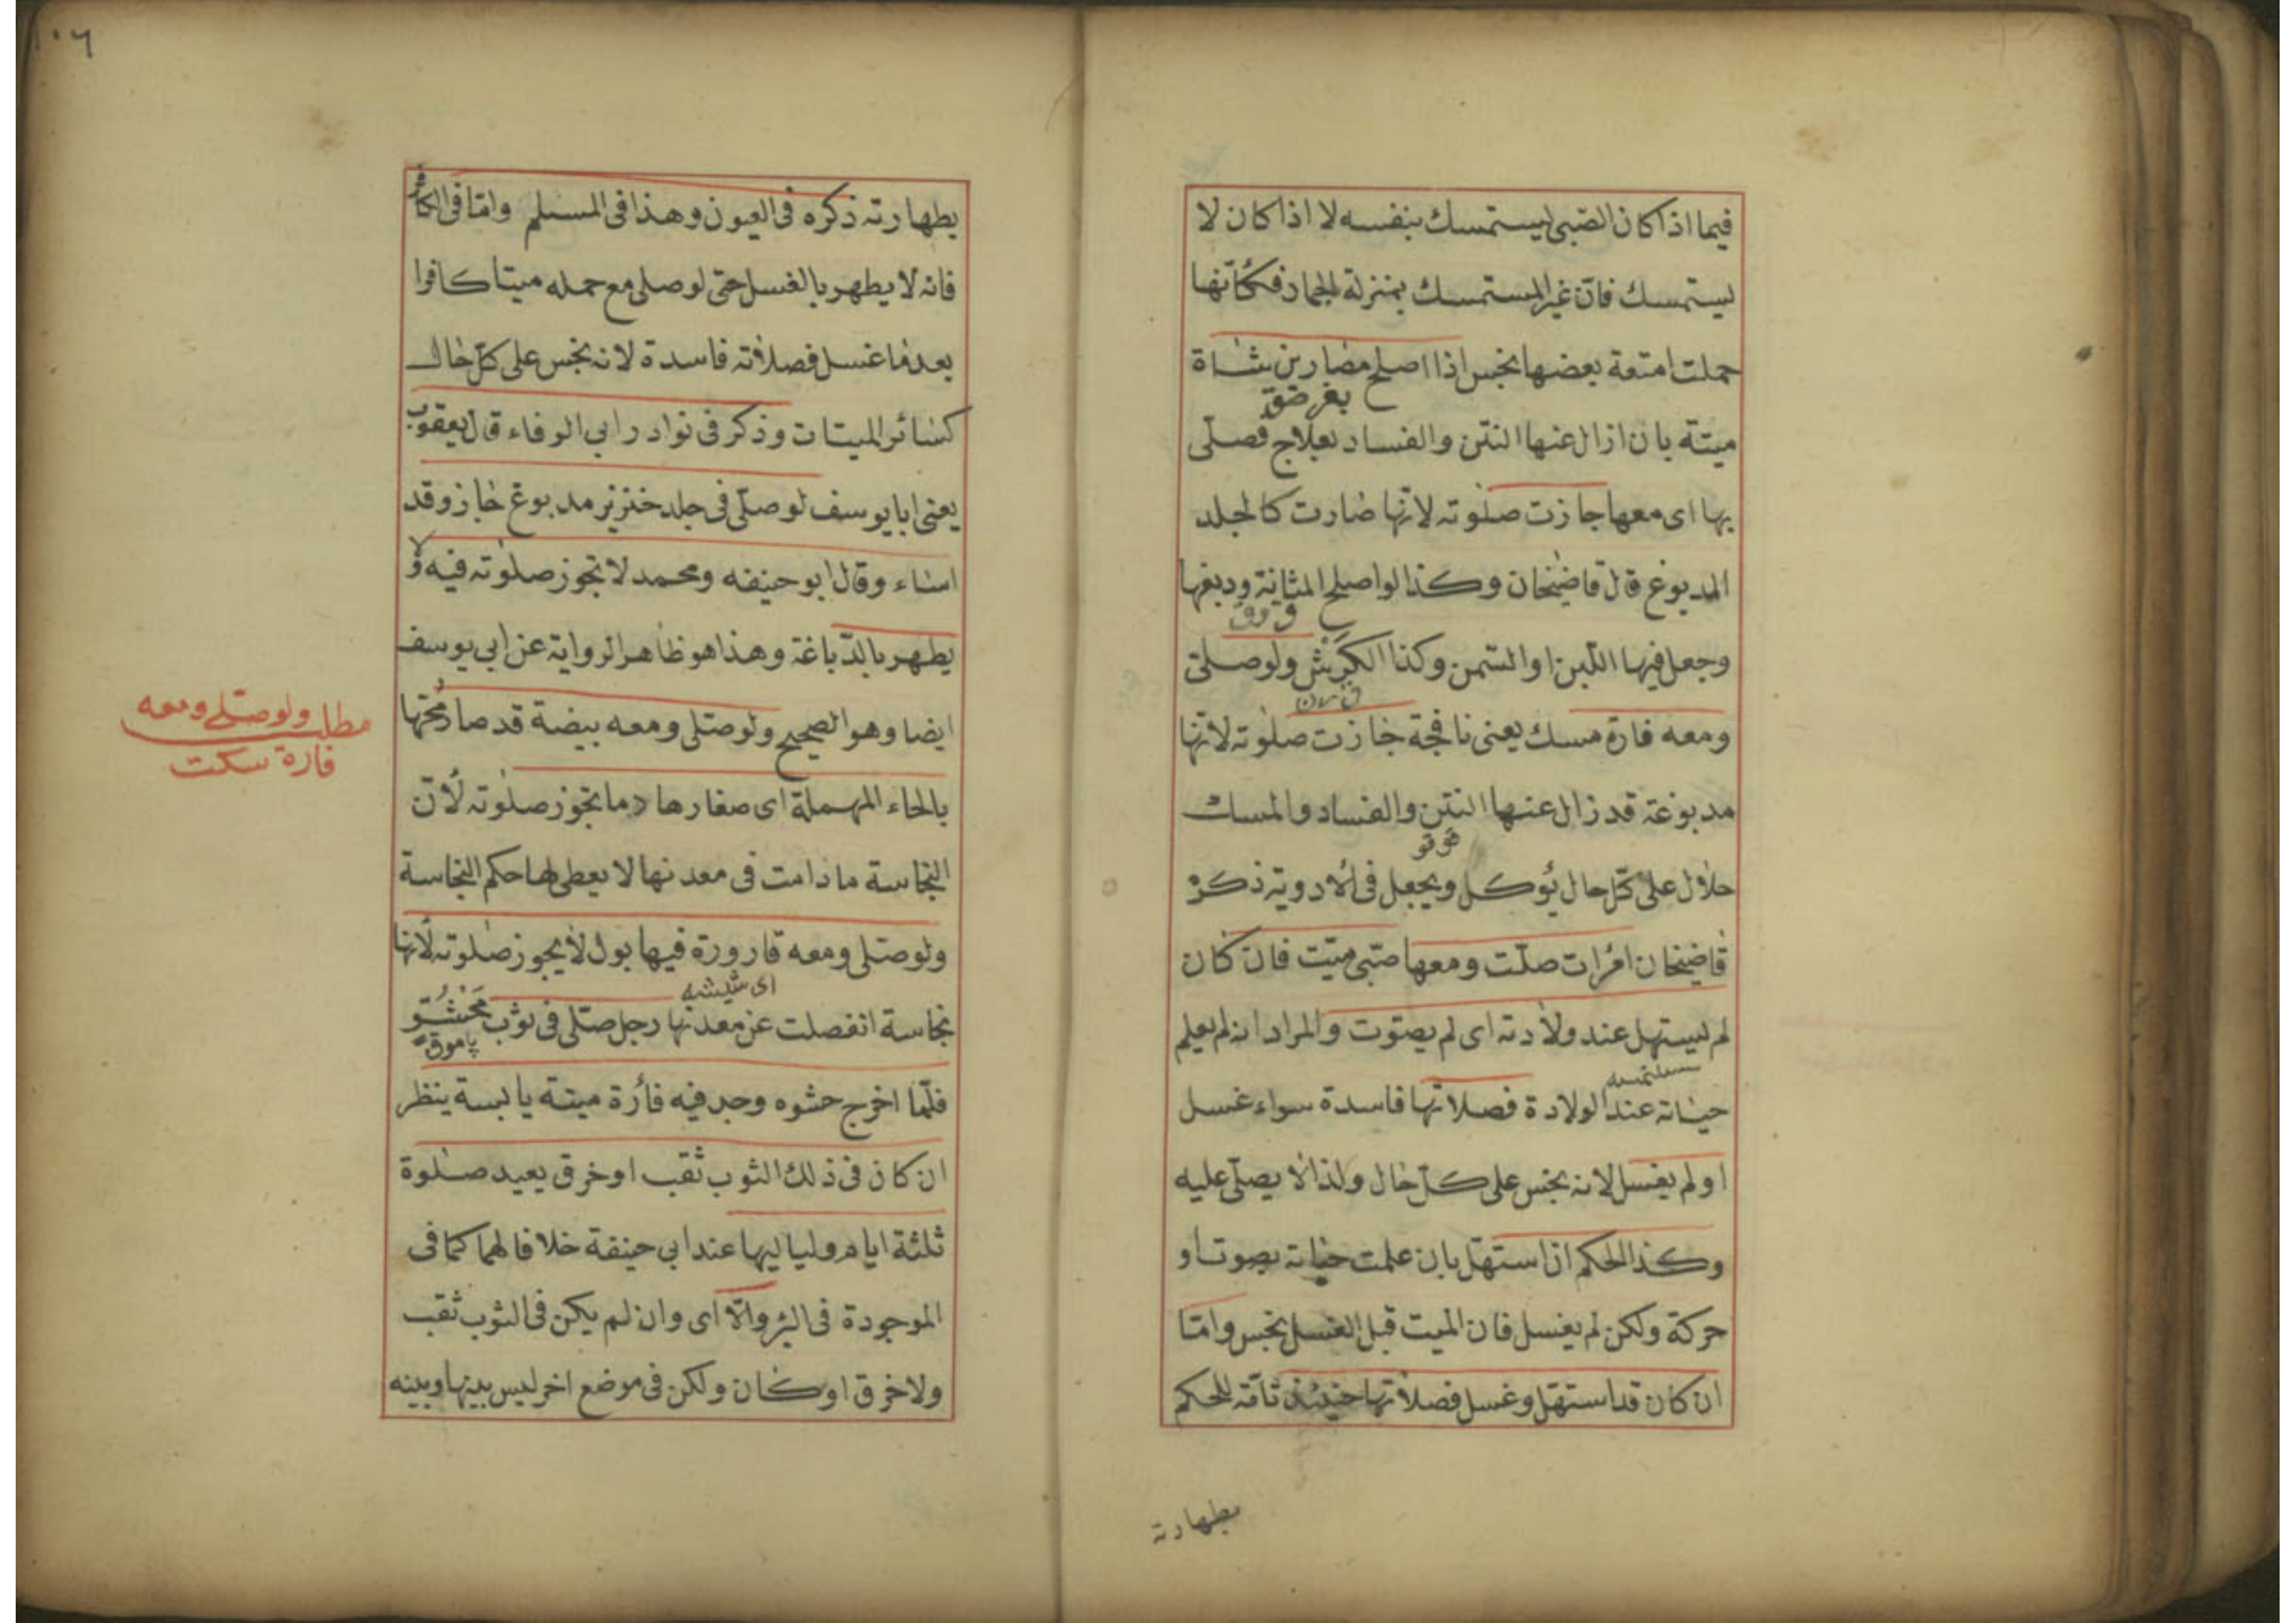 فيما اذا كان الصّبى يستمسك بنفسه لا اذا كان لا
يستمسك فانّ غير المستمسك بمنزلة الجماد فكأنّها
حملت امتعة بعضها نجس اذا اصلح مصارين شاة
ميتة بان ازال عنها النتن والفساد بعلاج فصلّى
بها اى معها جازت صلوته لانّها صارت كالجلد
المدبوغ قال قاضيخان وكذا لو اصلح المثانة ودبغها
وجعل فيها اللّبن او السّمن وكذا الكَرِش ولو صلّى
ومعه فارة مسك يعنى نافجة جازت صلوته لانّها
مدبوغة قد زال عنها النتن والفساد والمسك
قوقو
حلال على كلّ حال يؤكل ويجعل فى الادوية ذكره
قاضيخان امرأت صلّت ومعها صبّى ميّت فان كان
لم يستهل عند ولادته اى لم يصوّت والمراد انه لم يعلم
حياته عند الولادة فصلاتها فاسدة سواء غسل
او لم يغسل لانه نجس على كلّ حال ولذا لا يصلّى عليه
وكذا الحكم ان استهلّ بان علمت حياته بصوت او
حركة ولكن لم يغسل فان الميت قبل الغسل نجس وامّا
ان كان قد استهلّ وغسل فصلاتها حينئذ تامّة للحكم
بطهارته
١٠٦
بطهارته ذكره فى العيون وهذا فى المسلم وامّا فى الكافر
فانه لا يطهر بالغسل حتى لو صلى مع حمله ميتا كافرا
بعد ما غسل فصلاته فاسدة لانه نجس على كلّ حال
كسائر الميتات وذكر فى نوادر ابي الوفاء قال يعقوب
يعنى ابا يوسف لو صلّى فى جلد خنزير مدبوغ جاز وقد
اساء وقال ابو حنيفه ومحمد لا تجوز صلوته فيه ولا
يطهر بالدّباغة وهذا هو ظاهر الرواية عن ابي يوسف
ايضا وهو الصحيح ولو صلّى ومعه بيضة قد صار مُحّها
بالحاء المهملة اى صفارها دما تجوز صلوته لأنّ
النجاسة ما دامت فى معدنها لا يعطى لها حكم النجاسة
ولو صلى ومعه قارورة فيها بول لا يجوز صلوته لأنها
اى شيشه
نجاسة انفصلت عن معدنها رجل صلّى فى ثوب مَحْشُوّ
پاموق
فلمّا اخرج حشوه وجد فيه فأرة ميتة يابسة ينظر
ان كان فى ذلك الثوب ثقب او خرق يعيد صلوة
ثلثة ايام ولياليها عند ابى حنيفة خلافا لهما كما فى
الموجودة فى البئر والّا اى وان لم يكن فى الثوب ثقب
ولا خرق او كان ولكن فى موضع اخر ليس بينها وبينه
مطلب ولو صلى ومعه
فارة سكت